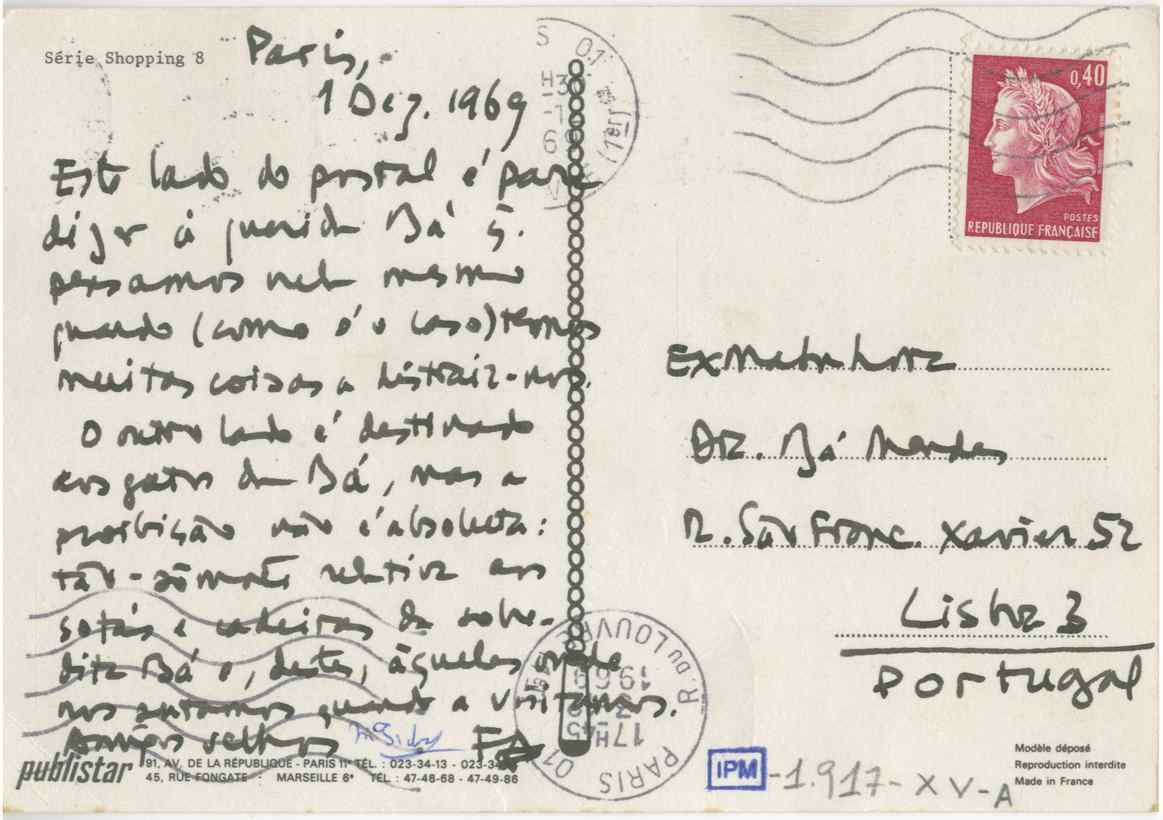 Série Shopping 8
Paris,
1 Dez. 1969
Este lado do postal é para
dizer à querida Bá q.
pensamos nela mesmo
quando (como é o caso) temos
muitas coisas a distrair-nos.
O outro lado é destinado
aos gatos da Bá, mas a
proibição não é absoluta:
tão-sòmente relativa aos
sofás e cadeiras da sobre-
dita Bá e, destes, àqueles onde
nos sentamos quando a visitamos.
Amigos velhos
publistar
91, AV. DE LA RÉPUBLIQUE - PARIS 11e TÉL. : 023-34-13 - 023-34-
45, RUE FONGATE - MARSEILLE 6e TÉL : 47-48-68 - 47-49-86
0,40
POSTES
REPUBLIQUE FRANÇAISE
Dra. Bá Mendes
R. São Franc. Xavier 52
Lisboa 3
Portugal
PARIS 01
R. DU LOUVRE
17H45
IPM - 1.917 - XV-A
Modèle déposé
Reproduction interdite
Made in France